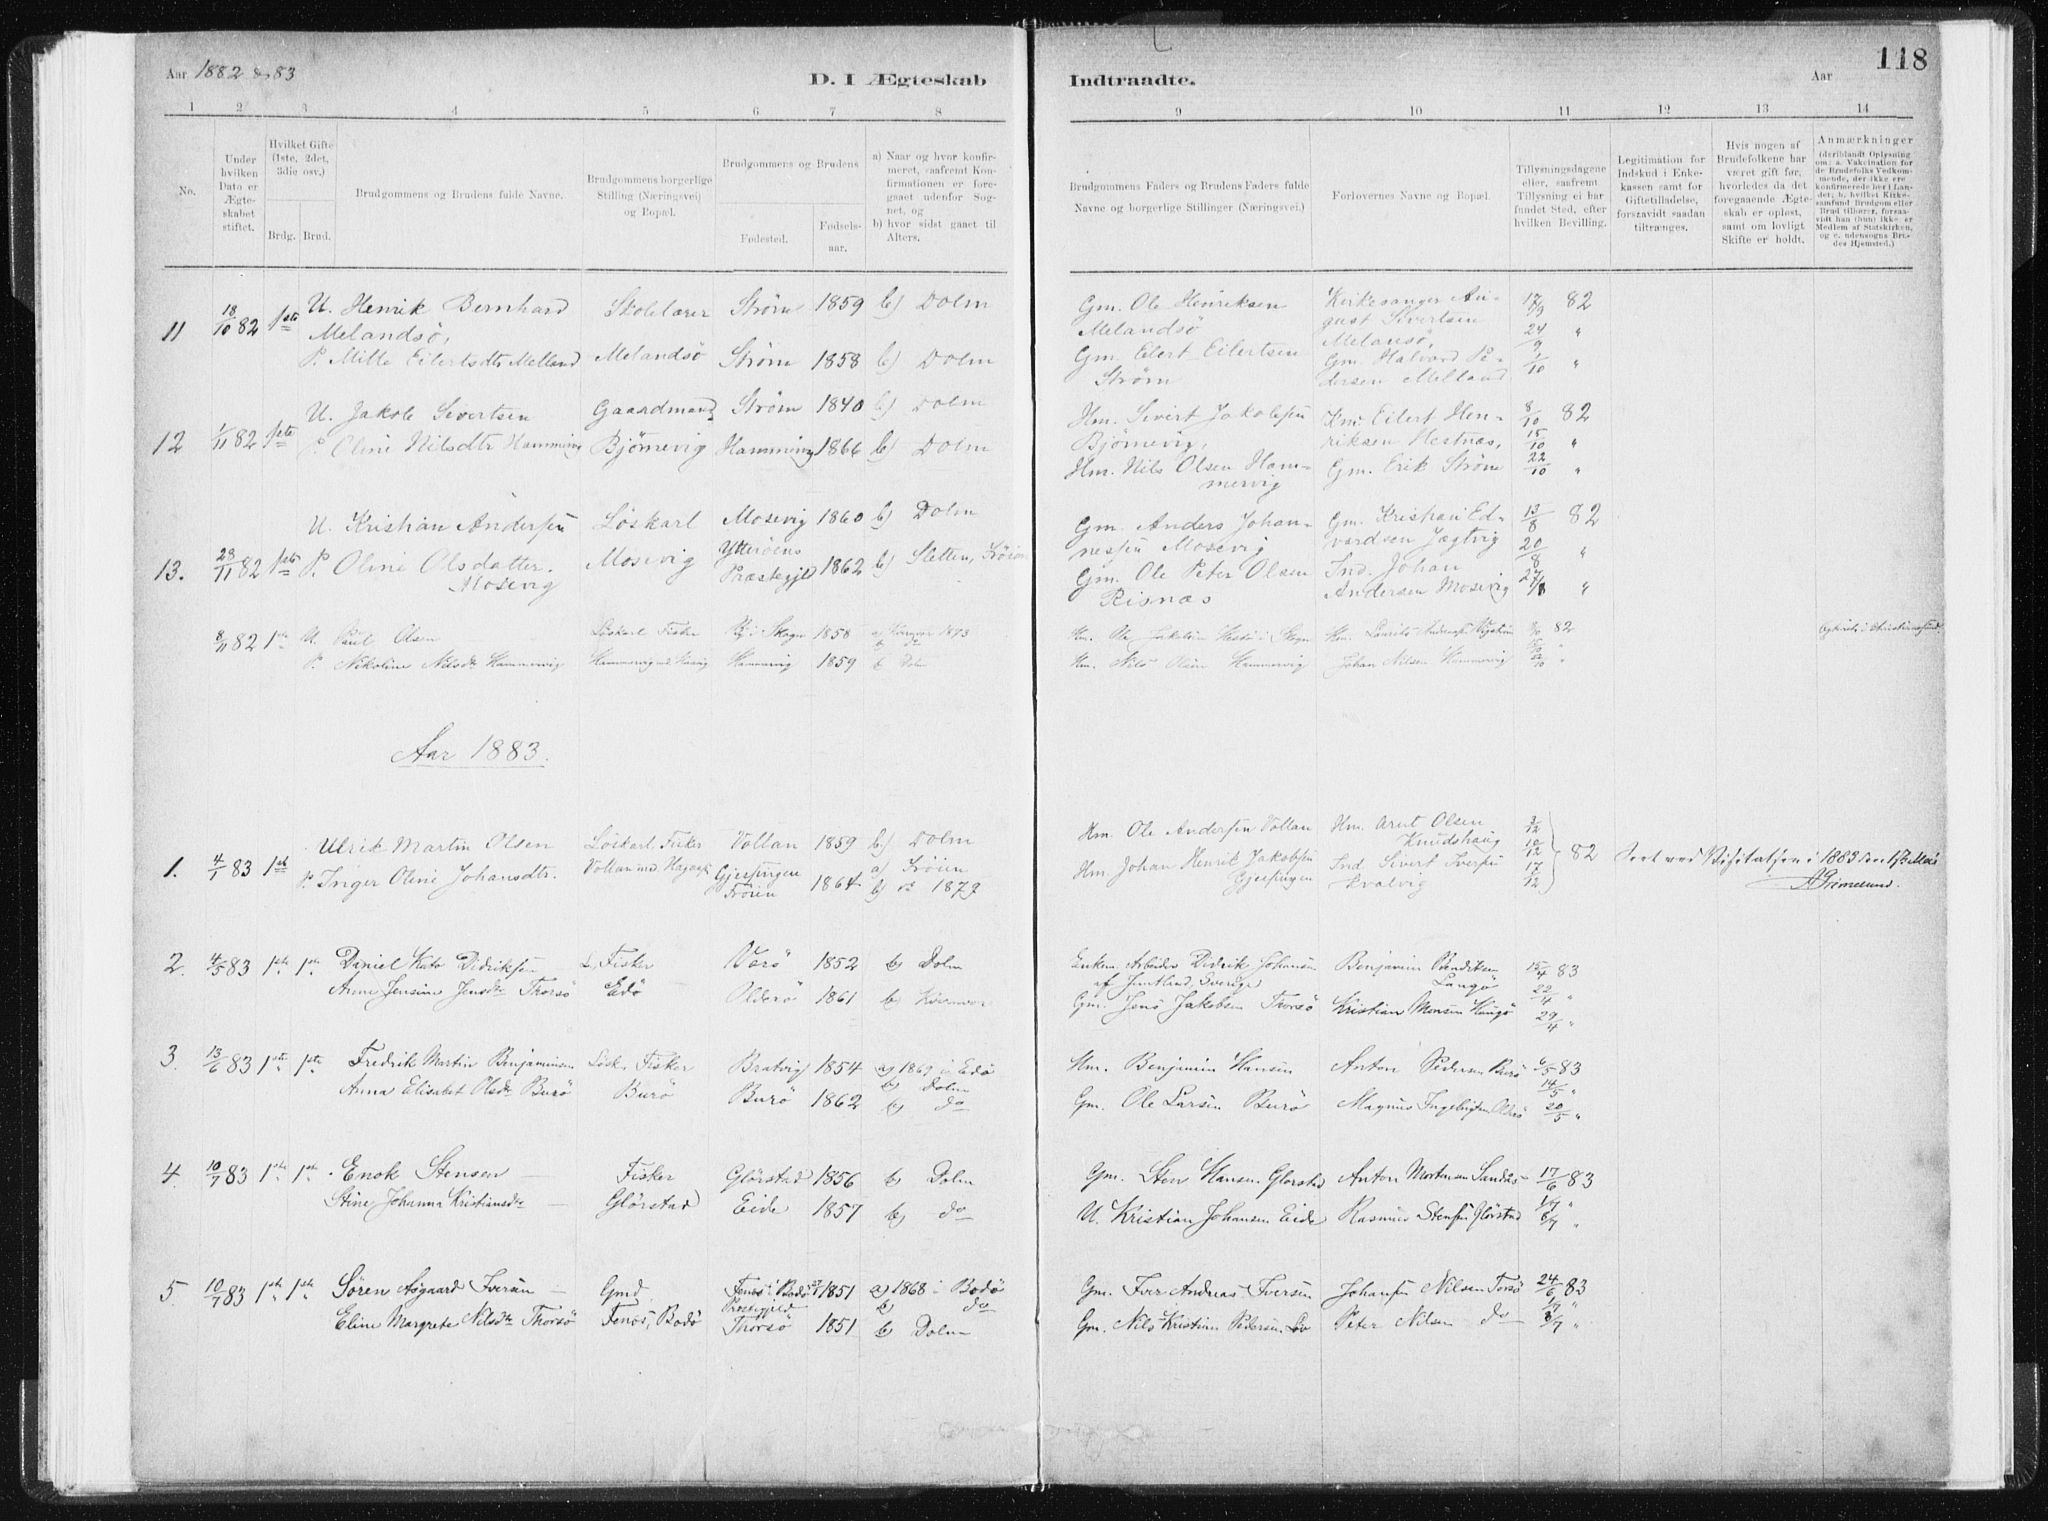 Aar 1882 & 83
D. I Ægteskab
Indtraadte.
Aar
118
1 2 3 4 5 6 7 8 9 10 11 12 13 14
No.
Under hvilken Dato er Ægteskabet stiftet.
Hvilket Gifte (1ste, 2det, 3die osv.)
Brdg. Brud.
Brudgommens og Brudens fulde Navne.
Brudgommens borgerlige Stilling (Næringsvei) og Bopæl.
Brudgommens og Brudens
Fødested.
Fødselsaar.
a) Naar og hvor konfirmeret, saafremt Konfirmationen er foregaaet udenfor Sognet, og
b) hvor sidst gaaet til Alters.
Brudgommens Faders og Brudens Faders fulde Navne og borgerlige Stillinger (Næringsvei.)
Forlovernes Navne og Bopæl.
Tillysningsdagene eller, saafremt Tillysning ei har fundet Sted, efter hvilken Bevilling.
Legitimation for Indskud i Enkekassen samt for Giftetilladelse, forsaavidt saadan tiltrænges.
Hvis nogen af Brudefolkene har været gift før, hvorledes da det foregaaende Ægteskab er opløst, samt om lovligt Skifte er holdt.
Anmærkninger (deriblandt Oplysning om: a. Vakcination for de Brudefolks Vedkommende, der ikke ere konfirmerede her i Landet; b. hvilket Kirkesamfund Brudgom eller Brud tilhører, forsaavidt han (hun) ikke er Medlem af Statskirken, og c. udensogns Brudes Hjemsted.)
11 18/10 82 1ste U. Henrik Bernhard Skolelærer Strøm 1859 b) Dolm Gm. Ole Henriksen Kirkesanger Au- 17/9 82
Melandsö, Melandsö gust Sivertsen 24/9 "
P. Mille Eilertsdtr Melland Melandsö Strøm 1858 b) Dolm Gm. Eilert Eilertsen Melansö,
Strøm Gm. Halvard Pe- 1/10 "
dersen Melland
12 1/11 82 1ste U. Jakob Sivertsen Gaardmand Strøm 1840 b) Dolm Hm. Sivert Jakobsen Km. Eilert Hen- 8/10 82
P. Oline Nilsdtr Hammervig Bjørnevig 1866 b) Dolm Bjørnevig, riksen Hestnæs, 15/10 "
Hm. Nils Olsen Ham- Gm. Erik Strøm 22/10 "
mervig
13. 28/11 82 1ste U. Kristian Andersen Löskarl Mosevig 1860 b) Dolm Gm. Anders Johan- Gm. Kristian Ed- 13/8 82
nesen Mosevig vardsen Jægtvig 20/8 "
P. Oline Olsdatter. Mosevig Ytterøens Præstegjld 1862 b) Sletten, Gm. Ole Peter Olsen Ind. Johan
Mosevig Risnæs Andersen Mosevig "
8/11 82 1ste U. Paul Olsen Löskarl Fisker 1858 Hm. Ole 82
P. Nikoline Nilsdtr Hammervig Hammervig 1859 b) Dolm Hm. Nils Olsen Hammervig Johan Nilsen Hammervig "
Aar 1883.
1. 4/1 83 1ste Ulrik Martin Olsen Löskarl Fisker Vollan 1859 b) Dolm Hm. Ole Andersen Vollan Hm. Arnt Olsen 3/12
Knudshaug 10/12 82
P. Inger Oline Johansdtr. Gjessingen 1864 a) Fröien Hm. Johan Henrik Jakobsen Ind. Sivert Iversen 17/12
Fröien b) 1879 Gjessingen Kvalvig
Seet ved Visitatsen i 1883
AGrimelund.
2. 4/5 83 1ste 1ste Daniel Kato Didriksen L. Fisker Værö 1852 b) Dolm Arbeider Didrik Johansen Benjamin Bendiksen 15/4 83
af Jemtland, Sverige Langö 22/4 "
Anne Jensine Jensdtr Thorsö Edö Olderö 1861 b) Kvernvær Gm. Jens Jakobsen Thorsö Kristian Monsen 29/4 "
3 13/6 83 1ste 1ste Fredrik Martin Benjaminsen Lösk. Fisker Bratvig 1854 a) 1869 i Edö Hm. Benjamin Hansen Anton Pedersen Burö 6/5 83
b) Dolm 14/5 "
Anna Elisabet Olsdtr Burö Burö Burö 1862 b) do Gm. Ole Larsen Burö Magnus 20/5 "
4. 10/7 83 1ste 1ste Enok Stensen Fisker Glörstad 1856 b) Dolm Gm. Sten Hansen Glorstad Anton Mortensen 17/6 83
Stine Johanna Kristiansdtr Glörstad Eide 1857 b) do U. Kristian Johansen Eide Rasmus Stensen Glörstad 1/7 8/7 "
5. 10/7 83 1ste 1ste Sören Asgaard Iversen Gmd. 1851 a) 1868 i Bodö Gm. Iver Andreas Iversen Johansen Nilsen Torsö 24/6 83
Præstegjeld b) do 1/7 "
Eline Margrete Nilsdtr Thorsö Bodö Thorsö 1851 b) Dolm Gm. Nils Kristian Pedersen Peter Nilsen do 8/7 "